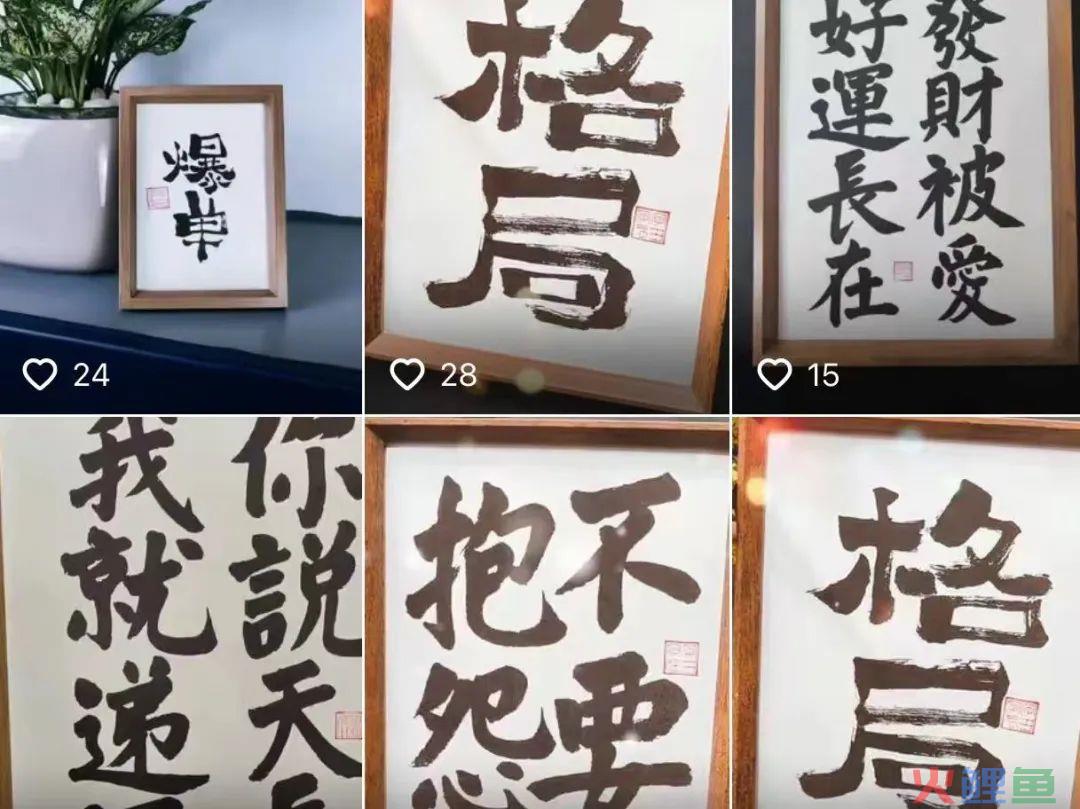 爆单
24
格局
28
發財被愛
好運長在
15
你說天
我就递
不要
抱怨
格局
火鲤鱼